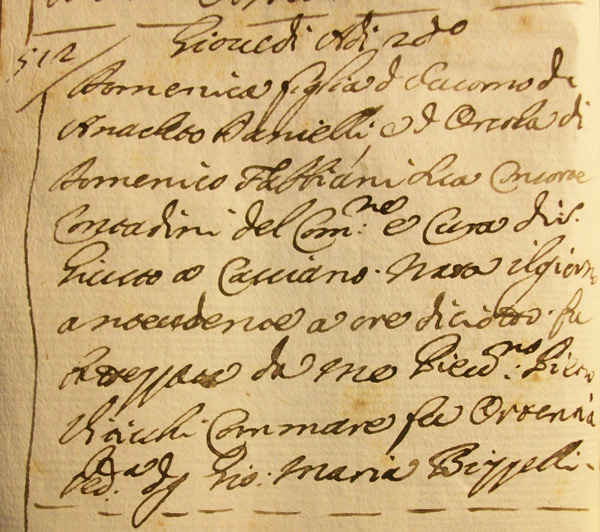 Giouedi Adi 2 do
512
Domenica figlia d Iacomo di
Anacleto Danielli, e d Orsola di
Domenico Fabbiani sua Consorte
Contadini del Com:ne e Cura di S.
Giusto a Casciano. Nata il giorno
antecedente a ore diciotto fu
battezzata da me Gio: Pietro
Commare fu Ortenzia
Ved.a di Gio. Maria Bizzelli.